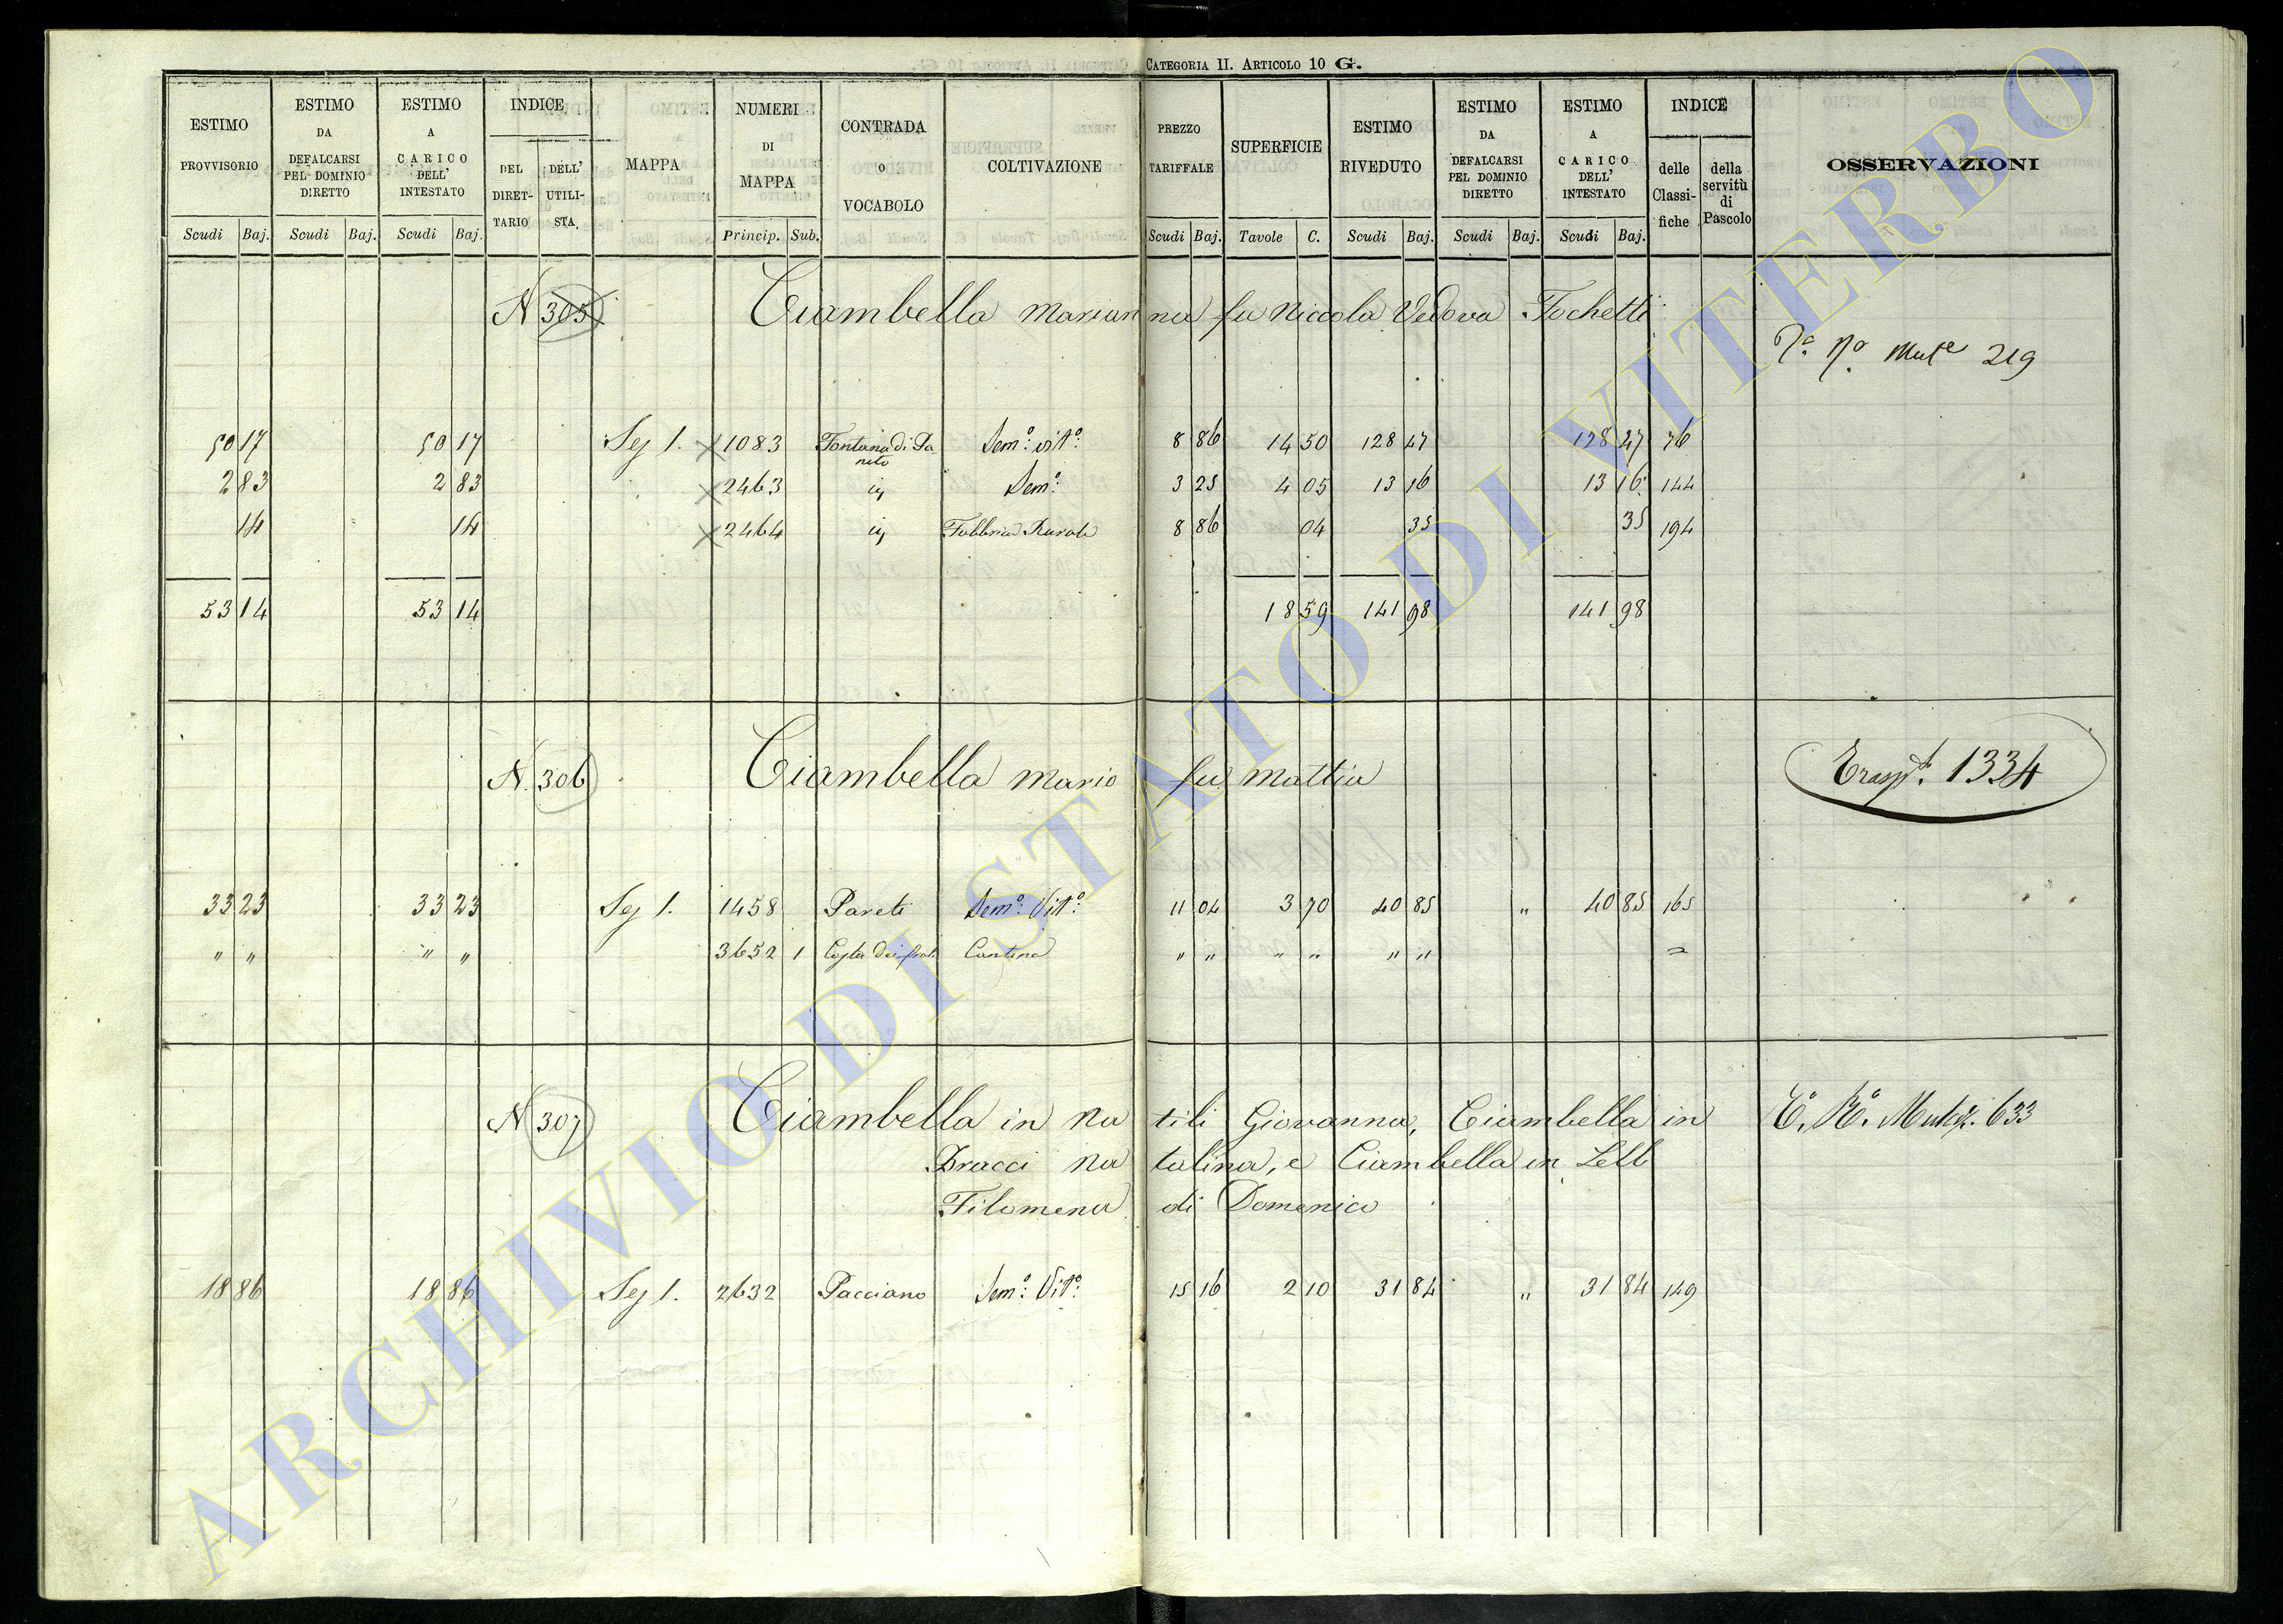 CATEGORIA II. ARTICOLO 10 G.
ESTIMO PROVVISORIO Scudi Baj.
ESTIMO DA DEFALCARSI PEL DOMINIO DIRETTO Scudi Baj.
ESTIMO A CARICO DELL' INTESTATO Scudi Baj.
INDICE DEL DIRET- TARIO DELL' UTILI- STA
MAPPA
NUMERI DI MAPPA Princip. Sub.
CONTRADA O VOCABOLO
COLTIVAZIONE
PREZZO TARIFFALE Scudi Baj.
SUPERFICIE Tavole C.
ESTIMO RIVEDUTO Scudi Baj.
ESTIMO DA DEFALCARSI PEL DOMINIO DIRETTO Scudi Baj.
ESTIMO A CARICO DELL' INTESTATO Scudi Baj.
INDICE delle Classi- fiche della servitù di Pascolo
OSSERVAZIONI
N 305 Ciambella Marianna fu Niccola Vedova Fochetti
219
50 17 50 17 Sez 1. 1083 Fontana di Pa Sem.º vit.º 8 86 14 50 128 47 128 47 76
2 83 2 83 2463 Sem.º 3 25 4 05 13 16 13 16 144
14 14 2464 Fabbrica Rurale 8 86 04 35 35 194
53 14 53 14 18 59 141 98 141 98
N. 306 Ciambella Mario fu Mattia
Trasp.to 1334
33 23 33 23 Sez 1. 1458 Pareti Sem.º Vit.º 11 04 3 70 40 85 " 40 85 165
" " " " 3652 1 Costa dei Cantina " " " " " "
N 307 Ciambella in Natili Giovanna, Ciambella in
633
Bracci Natalina, e Ciambella in Lelli
Filomena di Domenico
18 86 18 86 Sez 1. 2632 Pacciano Sem.º Vit.º 15 16 2 10 31 84 " 31 84 149
ARCHIVIO DI STATO DI VITERBO